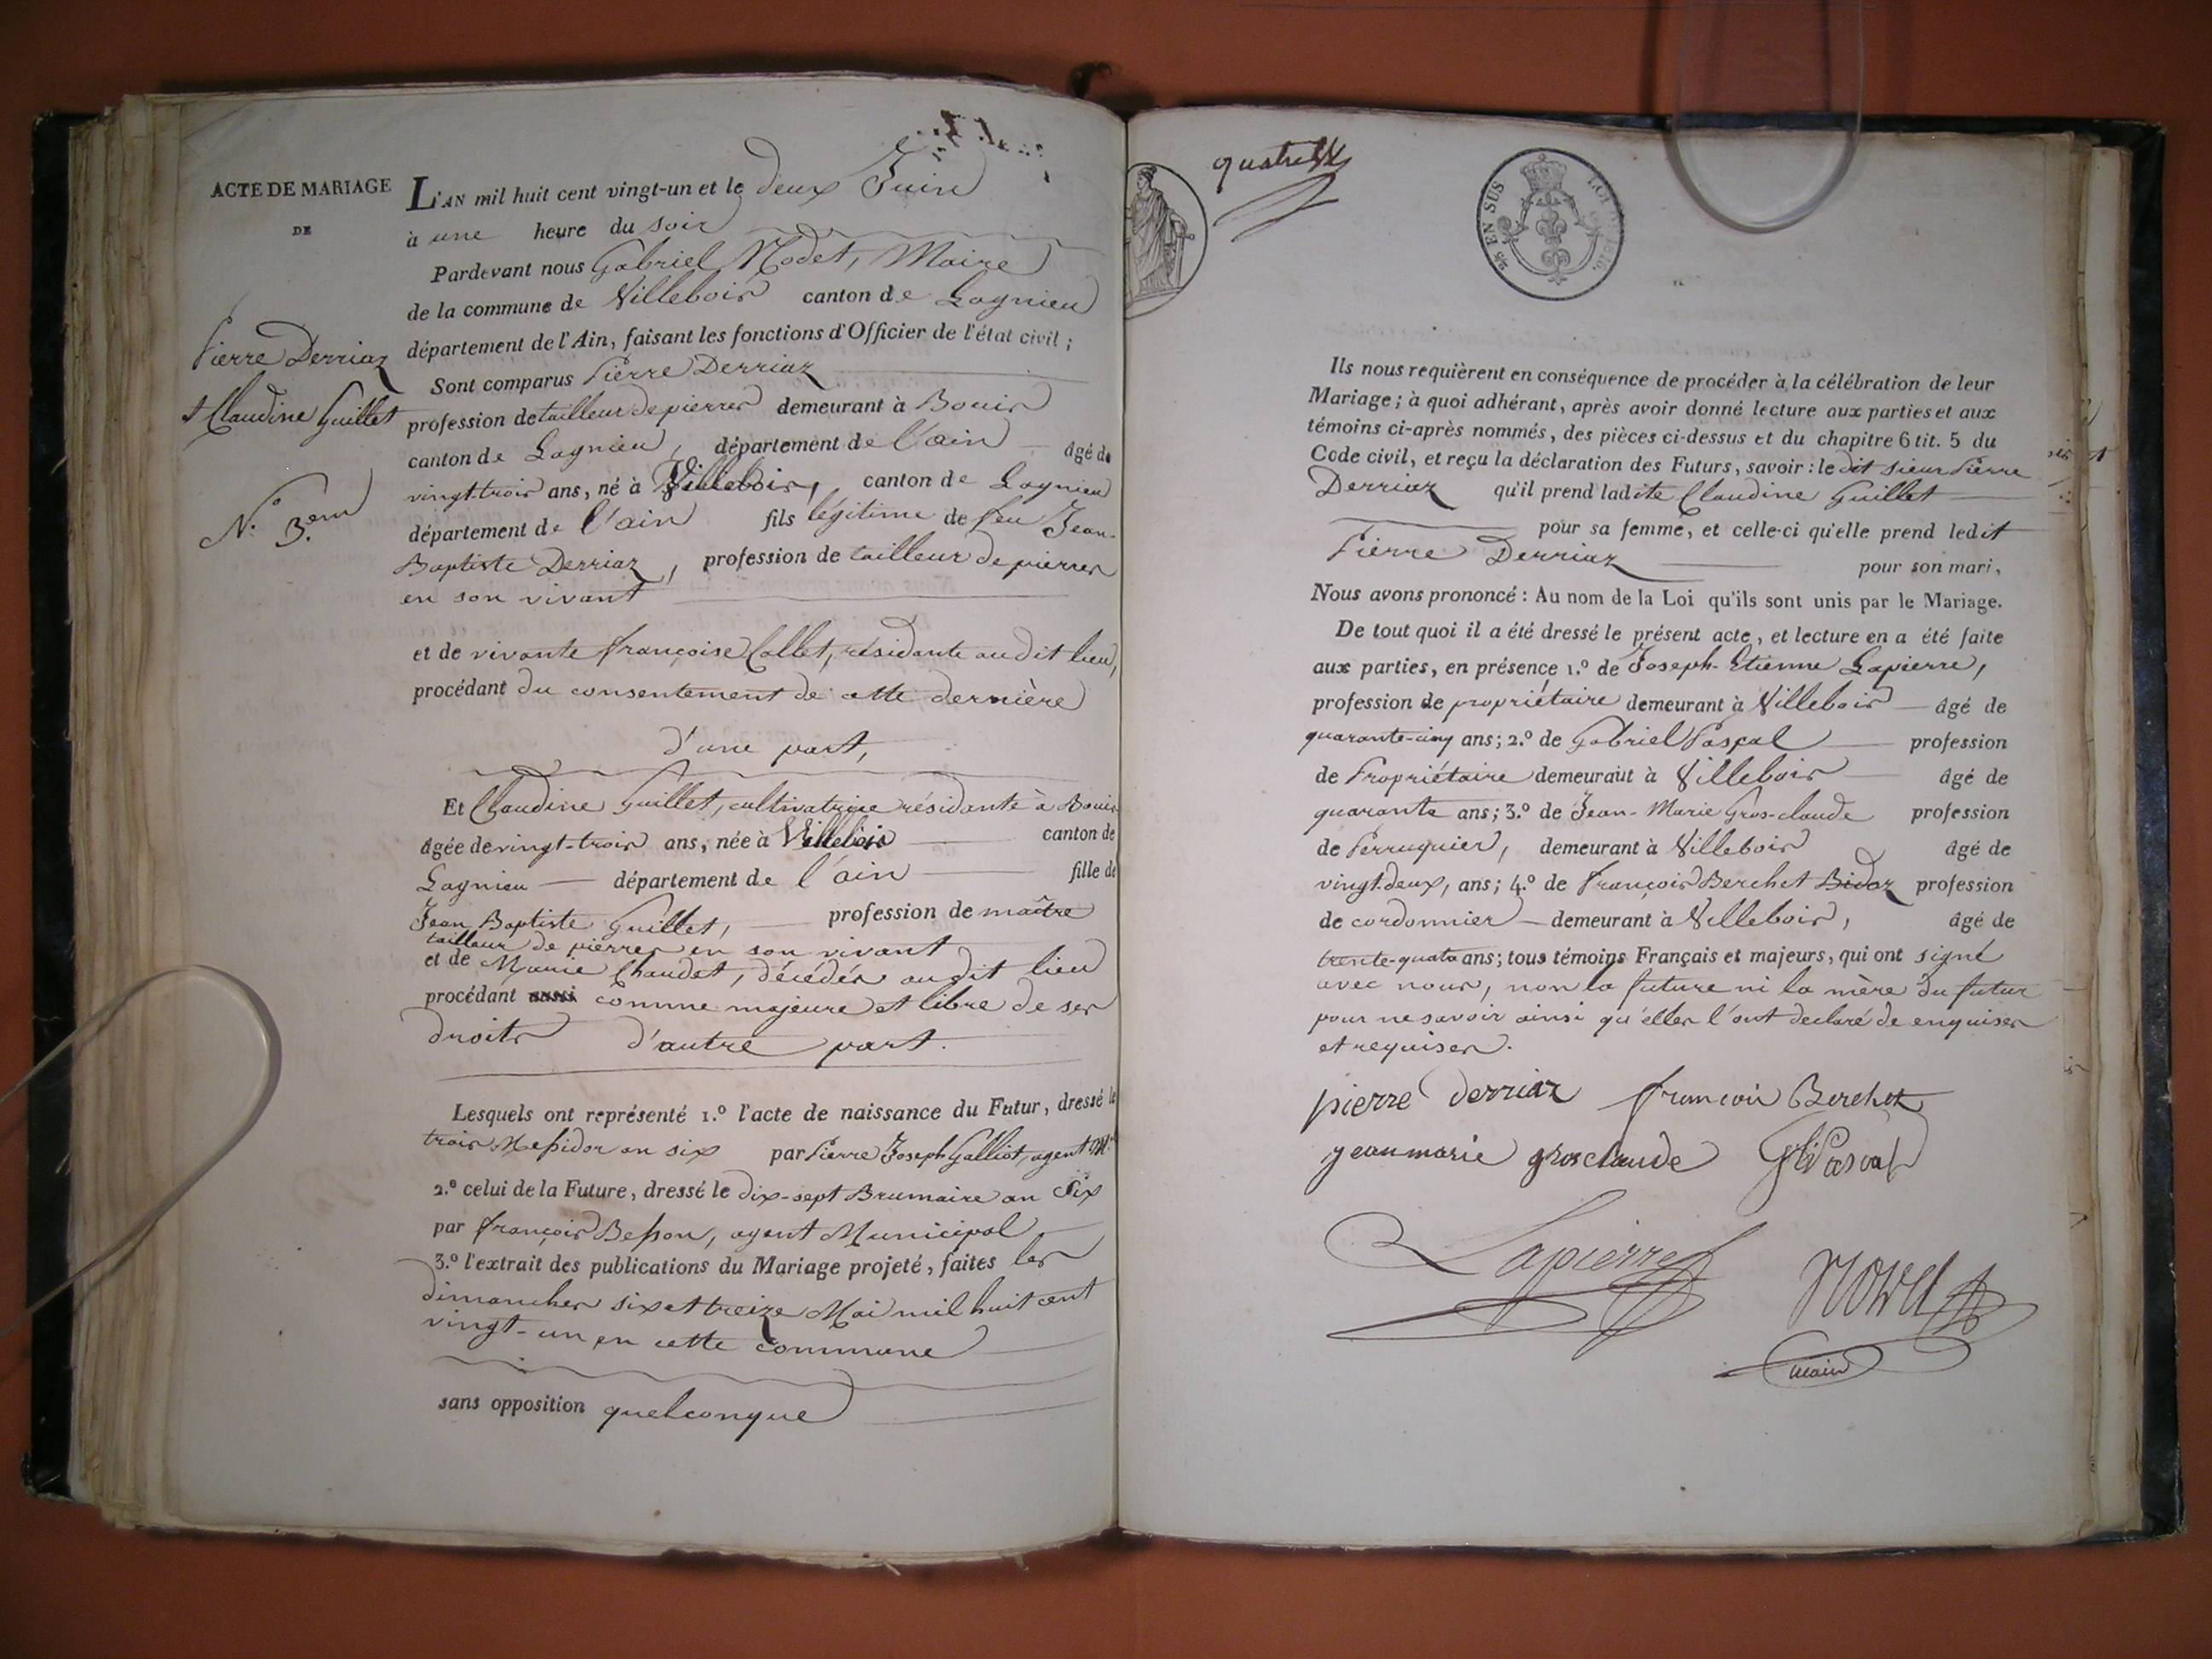 ACTE DE MARIAGE
DE
Pierre Derriaz
& Claudine Guillet
N.º 3.em
L'AN mil huit cent vingt-un et le deux Juin
à une heure du soir
Pardevant nous Gabriel Modet, Maire
de la commune de Villebois canton de Lagnieu
département de l'Ain, faisant les fonctions d'Officier de l'état civil ;
Sont comparus Pierre Derriaz
profession de tailleur de pierres demeurant à Bouis
canton de Lagnieu, département de l'ain âgé de
vingt-trois ans, né à Villebois, canton de Lagnieu
département de l'ain fils légitime de feu Jean-
Baptiste Derriaz, profession de tailleur de pierres
en son vivant
et de vivante françoise Collet, résidante audit lieu,
procédant du consentement de cette dernière
d'une part,
Et Claudine Guillet, cultivatrice résidante à Bouis
âgée de vingt-trois ans, née à Villebois canton de
Lagnieu département de l'ain fille de
Jean Baptiste Guillet, profession de maître
tailleur de pierres en son vivant
et de Marie Chaudet, décédés audit lieu
procédant aussi comme majeure et libre de ses
droits d'autre part.
Lesquels ont représenté 1.º l'acte de naissance du Futur, dressé le
trois Messidor an six par Pierre Joseph Galliot, agent M.al
2.º celui de la Future, dressé le dix-sept Brumaire an Six
par françois Besson, agent Municipal
3.º l'extrait des publications du Mariage projeté, faites les
dimanches six et treize Mai mil huit cent
vingt-un en cette commune
sans opposition quelconque
25 EN SUS
Ils nous requièrent en conséquence de procéder à la célébration de leur
Mariage ; à quoi adhérant, après avoir donné lecture aux parties et aux
témoins ci-après nommés, des pièces ci-dessus et du chapitre 6 tit. 5 du
Code civil, et reçu la déclaration des Futurs, savoir : le dit sieur Pierre
Derriaz qu'il prend ladite Claudine Guillet
pour sa femme, et celle-ci qu'elle prend ledit
Pierre Derriaz pour son mari,
Nous avons prononcé : Au nom de la Loi qu'ils sont unis par le Mariage.
De tout quoi il a été dressé le présent acte, et lecture en a été faite
aux parties, en présence 1.º de Joseph-Etienne Lapierre,
profession de propriétaire demeurant à Villebois âgé de
quarante-cinq ans ; 2.º de Gabriel Pascal profession
de Propriétaire demeurant à Villebois âgé de
quarante ans ; 3.º de Jean-Marie Gros-claude profession
de Perruquier, demeurant à Villebois âgé de
vingt-deux, ans ; 4.º de françois Berchet Bidaz profession
de cordonnier demeurant à Villebois, âgé de
trente-quatre ans ; tous témoins Français et majeurs, qui ont signé
avec nous, non la future ni la mère du futur
pour ne savoir ainsi qu'elles l'ont declaré de enquises
et requises.
pierre derriaz françois Berchet
jeanmarie grosclaude Gl Pascal
Lapierre
maire